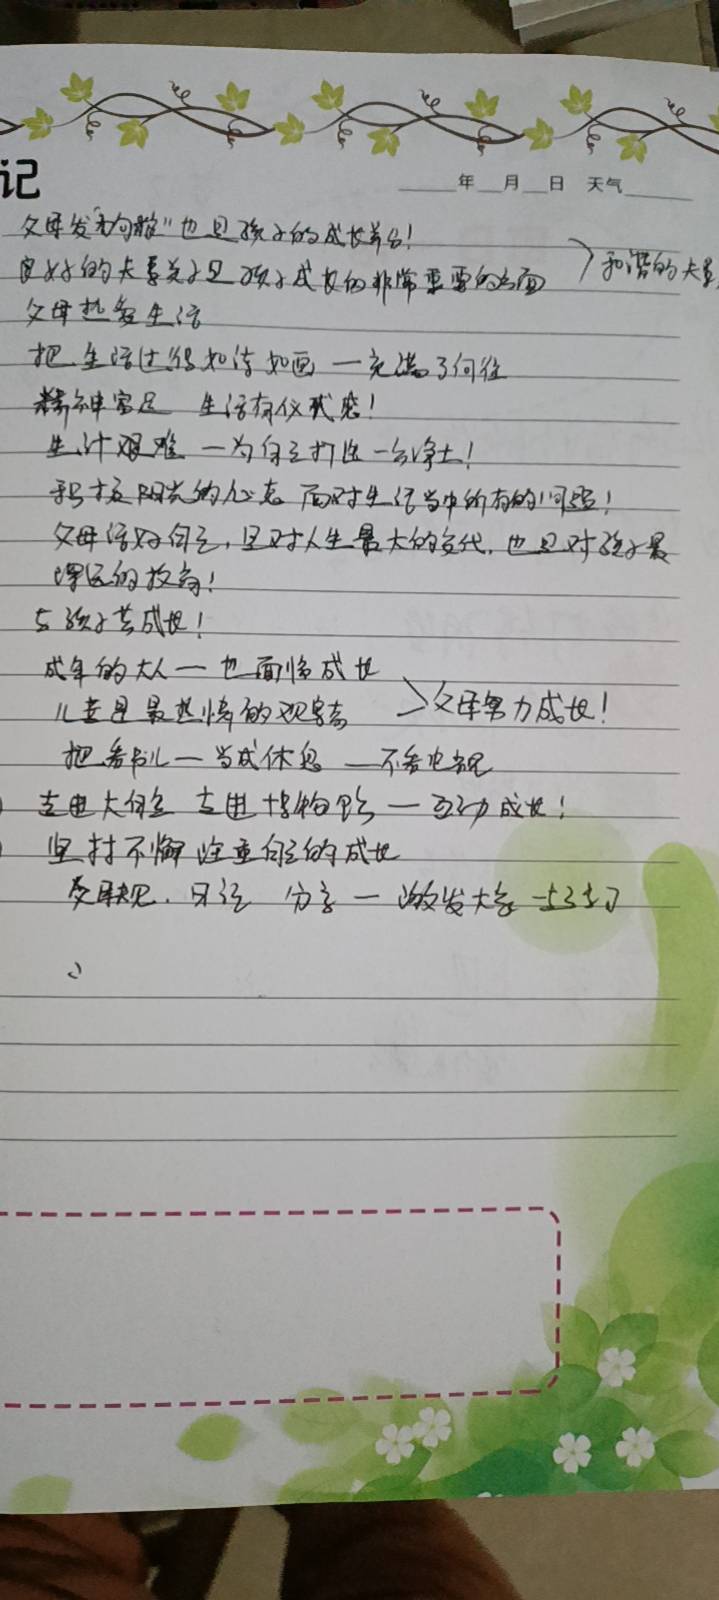 记
年 月 日 天气
父母发 也是孩子的成长养台!
良好的夫妻关系是孩子成长的非常重要的方面 > 和谐的夫妻
父母热爱生活
把生活过得如诗如画一充满了向往
精神富足 生活有仪式感!
生计艰难 一为自己打造一台净土!
积极阳光的心态 面对生活当中所有的问题!
父母活好自己,是对人生最大的交代,也是对孩子最
深远的教育!
与孩子共成长!
成年的大人一也面临成长
儿童是最热情的观察者 > 父母努力成长!
把看书儿一当成休息 一不看电视
走进大自然 走进博物馆一互动成长!
坚持不懈注重自己的成长
日记 分享 一激发大家一起学习